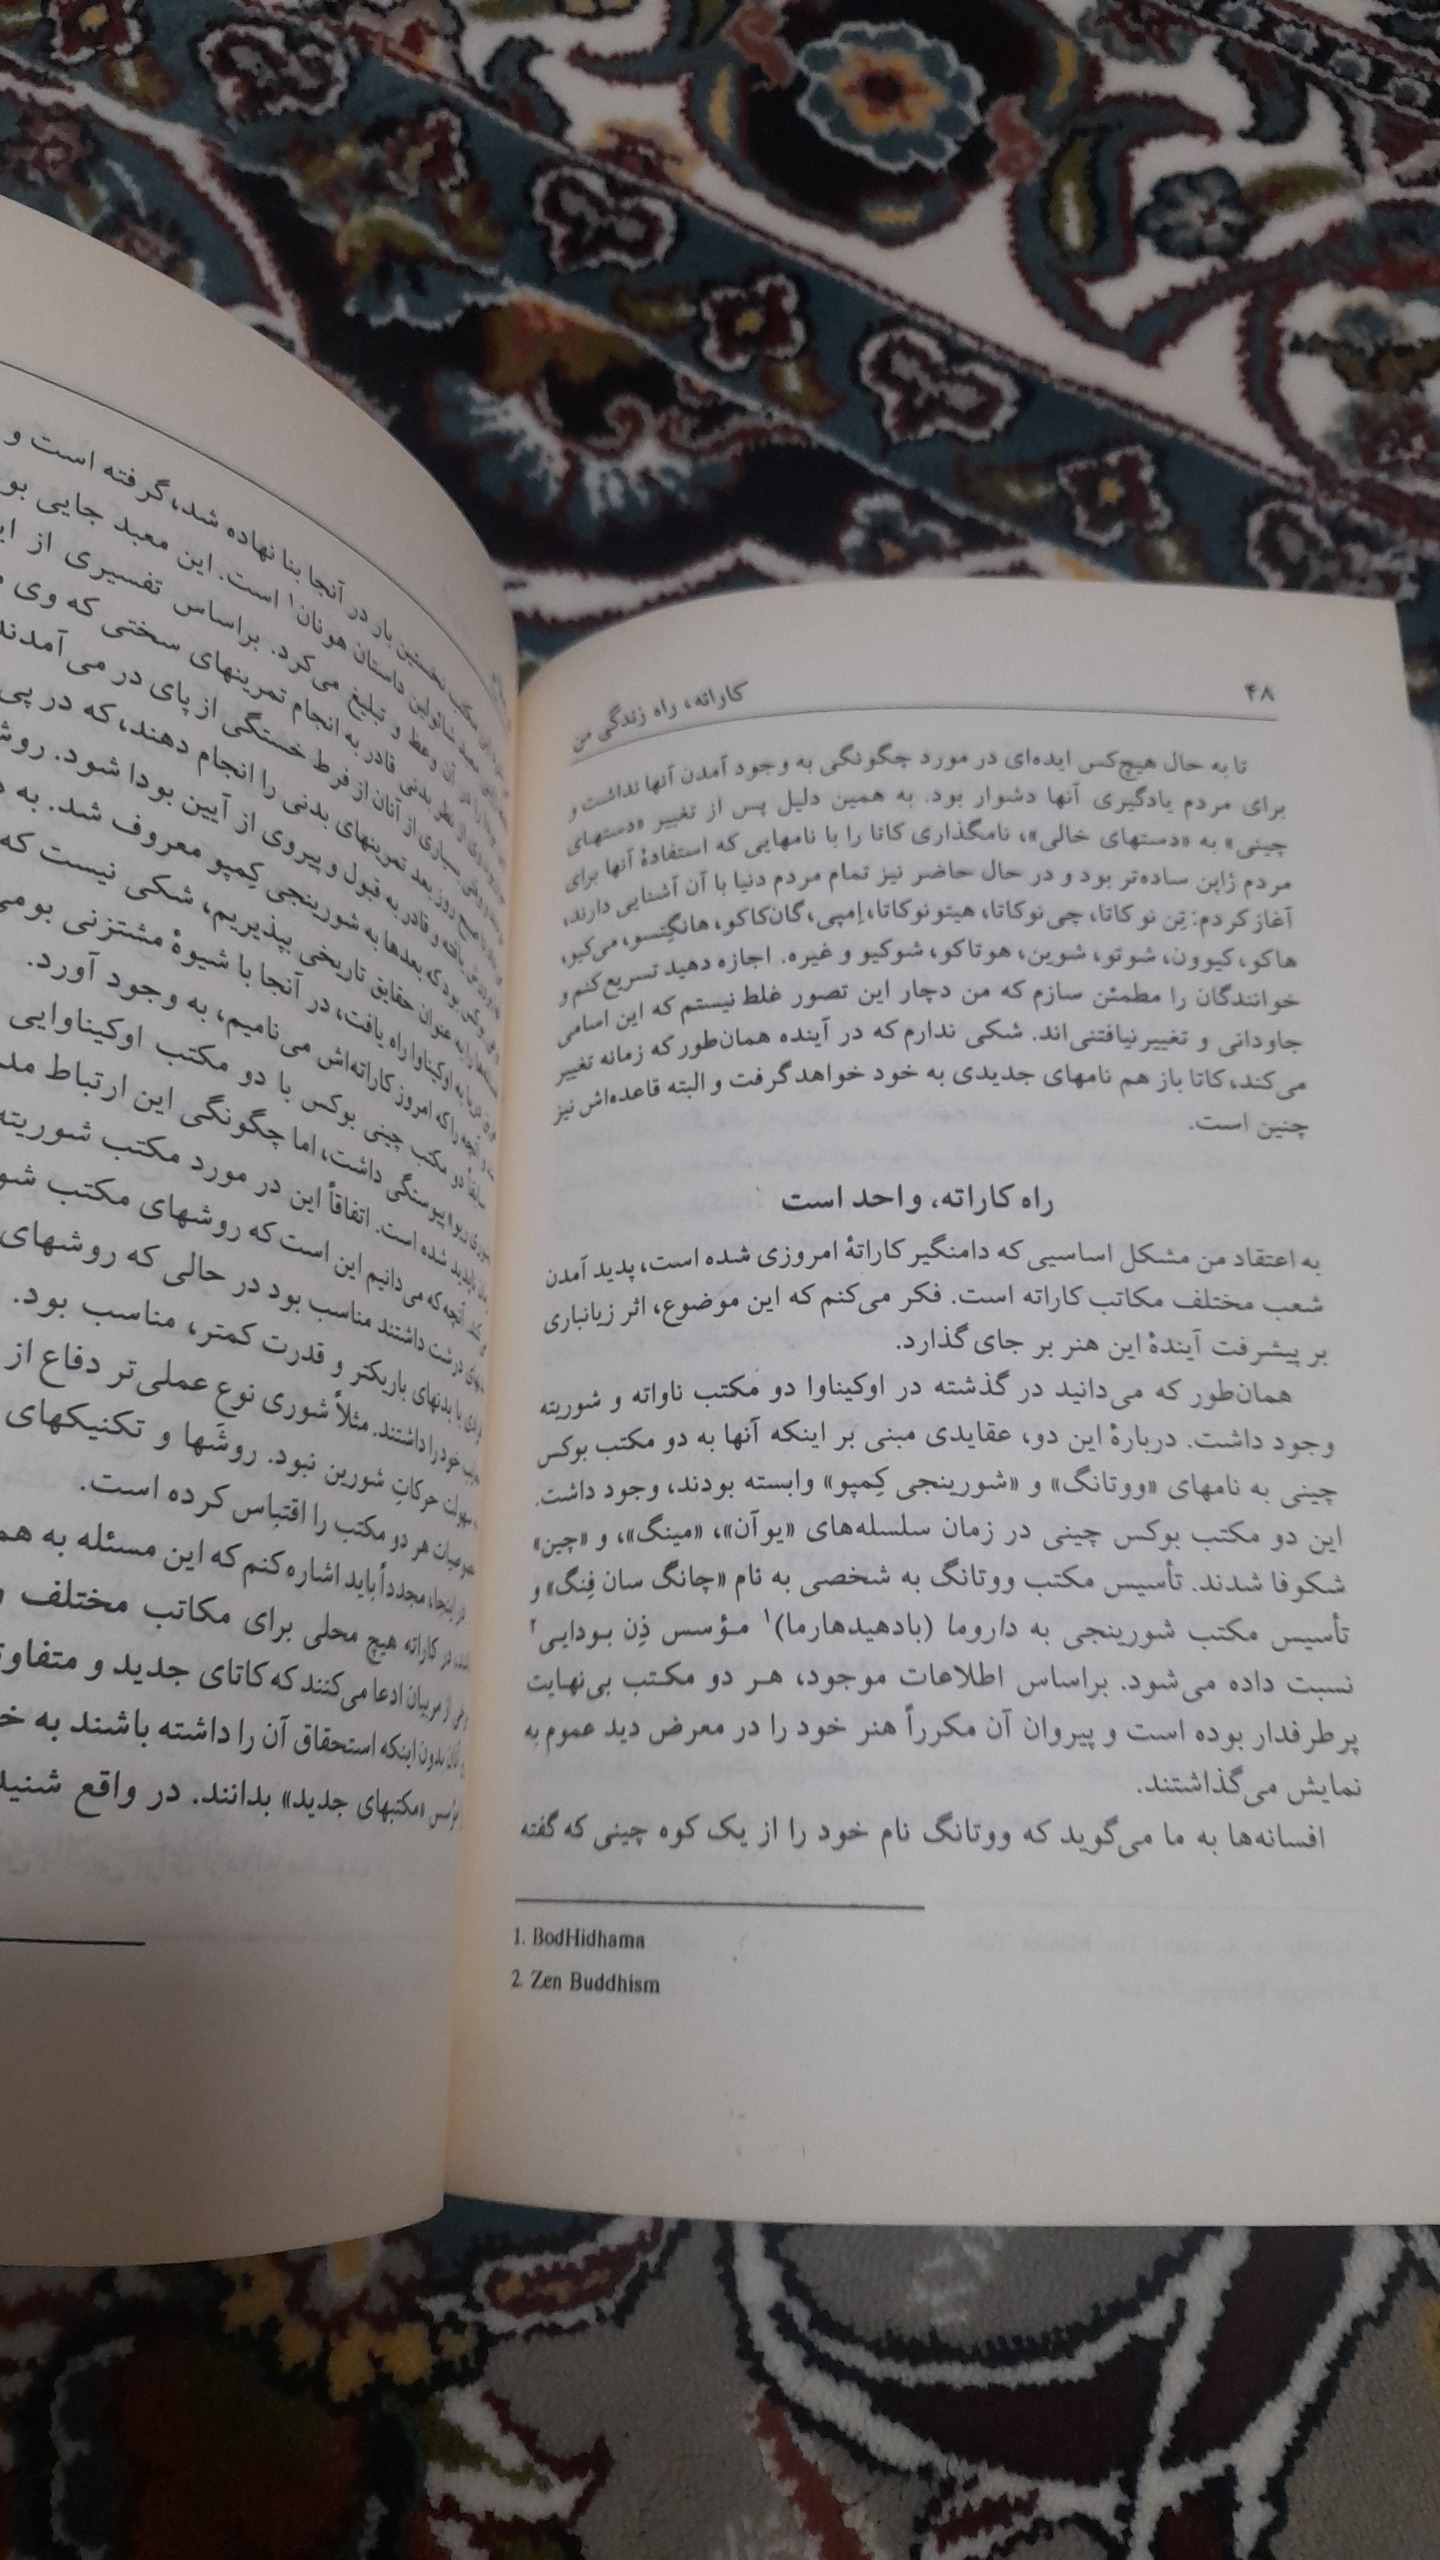 ۴۸
کاراته، راه زندگی من
تا به حال هیچ‌کس ایده‌ای در مورد چگونگی به وجود آمدن آنها نداشت و
برای مردم یادگیری آنها دشوار بود. به همین دلیل پس از تغییر «دستهای
چینی» به «دستهای خالی»، نامگذاری کاتا را با نامهایی که استفادهٔ آنها برای
مردم ژاپن ساده‌تر بود و در حال حاضر نیز تمام مردم دنیا با آن آشنایی دارند،
آغاز کردم: تِن نو کاتا، چی‌نوکاتا، هیتونوکاتا، اِمپی، گان‌کاکو، هانگِتسو، می‌کیو،
هاکو، کیوون، شوتو، شوین، هوتاکو، شوکیو و غیره. اجازه دهید تسریع کنم و
خوانندگان را مطمئن سازم که من دچار این تصور غلط نیستم که این اسامی
جاودانی و تغییرنیافتنی‌اند. شکی ندارم که در آینده همان‌طور که زمانه تغییر
می‌کند، کاتا باز هم نامهای جدیدی به خود خواهد گرفت و البته قاعده‌اش نیز
چنین است.
راه کاراته، واحد است
به اعتقاد من مشکل اساسیی که دامنگیر کاراتهٔ امروزی شده است، پدید آمدن
شعب مختلف مکاتب کاراته است. فکر می‌کنم که این موضوع، اثر زیانباری
بر پیشرفت آیندهٔ این هنر بر جای گذارد.
همان‌طور که می‌دانید در گذشته در اوکیناوا دو مکتب ناواته و شوریته
وجود داشت. دربارهٔ این دو، عقایدی مبنی بر اینکه آنها به دو مکتب بوکس
چینی به نامهای «ووتانگ» و «شورینجی کِمپو» وابسته بودند، وجود داشت.
این دو مکتب بوکس چینی در زمان سلسله‌های «یوآن»، «مینگ»، و «چین»
شکوفا شدند. تأسیس مکتب ووتانگ به شخصی به نام «چانگ سان فِنگ» و
تأسیس مکتب شورینجی به داروما (بادهیدهارما)۱ مؤسس ذِن بودایی۲
نسبت داده می‌شود. براساس اطلاعات موجود، هر دو مکتب بی‌نهایت
پرطرفدار بوده است و پیروان آن مکرراً هنر خود را در معرض دید عموم به
نمایش می‌گذاشتند.
افسانه‌ها به ما می‌گوید که ووتانگ نام خود را از یک کوه چینی که گفته
1. BodHidhama
2. Zen Buddhism
نخستین بار در آنجا بنا نهاده شد، گرفته است و
معبد شائولین داستان هونان۱ است. این معبد جایی
آن وعظ و تبلیغ می‌کرد. براساس تفسیری از
نظر بدنی قادر به انجام تمرینهای سختی که وی
بسیاری از آنان از فرط خستگی از پای در می‌آمدند
صبح روز بعد تمرینهای بدنی را انجام دهند، که در پی
یافته و قادر به قبول و پیروی از آیین بودا شود.
بود که بعدها به شورینجی کِمپو معروف شد. به
را به عنوان حقایق تاریخی بپذیریم، شکی نیست که
به اوکیناوا راه یافت، در آنجا با شیوهٔ مشتزنی
آنچه را که امروز کاراته‌اش می‌نامیم، به وجود آورد.
سابقاً دو مکتب چینی بوکس با دو مکتب اوکیناوایی
پیوستگی داشت، اما چگونگی این ارتباط
پدید شده است. اتفاقاً این در مورد مکتب شوریته
آنچه که می‌دانیم این است که روشهای مکتب
درشت داشتند مناسب بود در حالی که روشهای
با بدنهای باریکتر و قدرت کمتر، مناسب بود.
خود را داشتند. مثلاً شوری نوع عملی‌تر دفاع از
سهولت حرکاتِ شورین نبود. روشها و تکنیکهای
هر دو مکتب را اقتباس کرده است.
در اینجا، مجدداً باید اشاره کنم که این مسئله به
در کاراته هیچ محلی برای مکاتب مختلف
از مربیان ادعا می‌کنند که کاتای جدید و
بدون اینکه استحقاق آن را داشته باشند به
«مکتبهای جدید» بدانند. در واقع